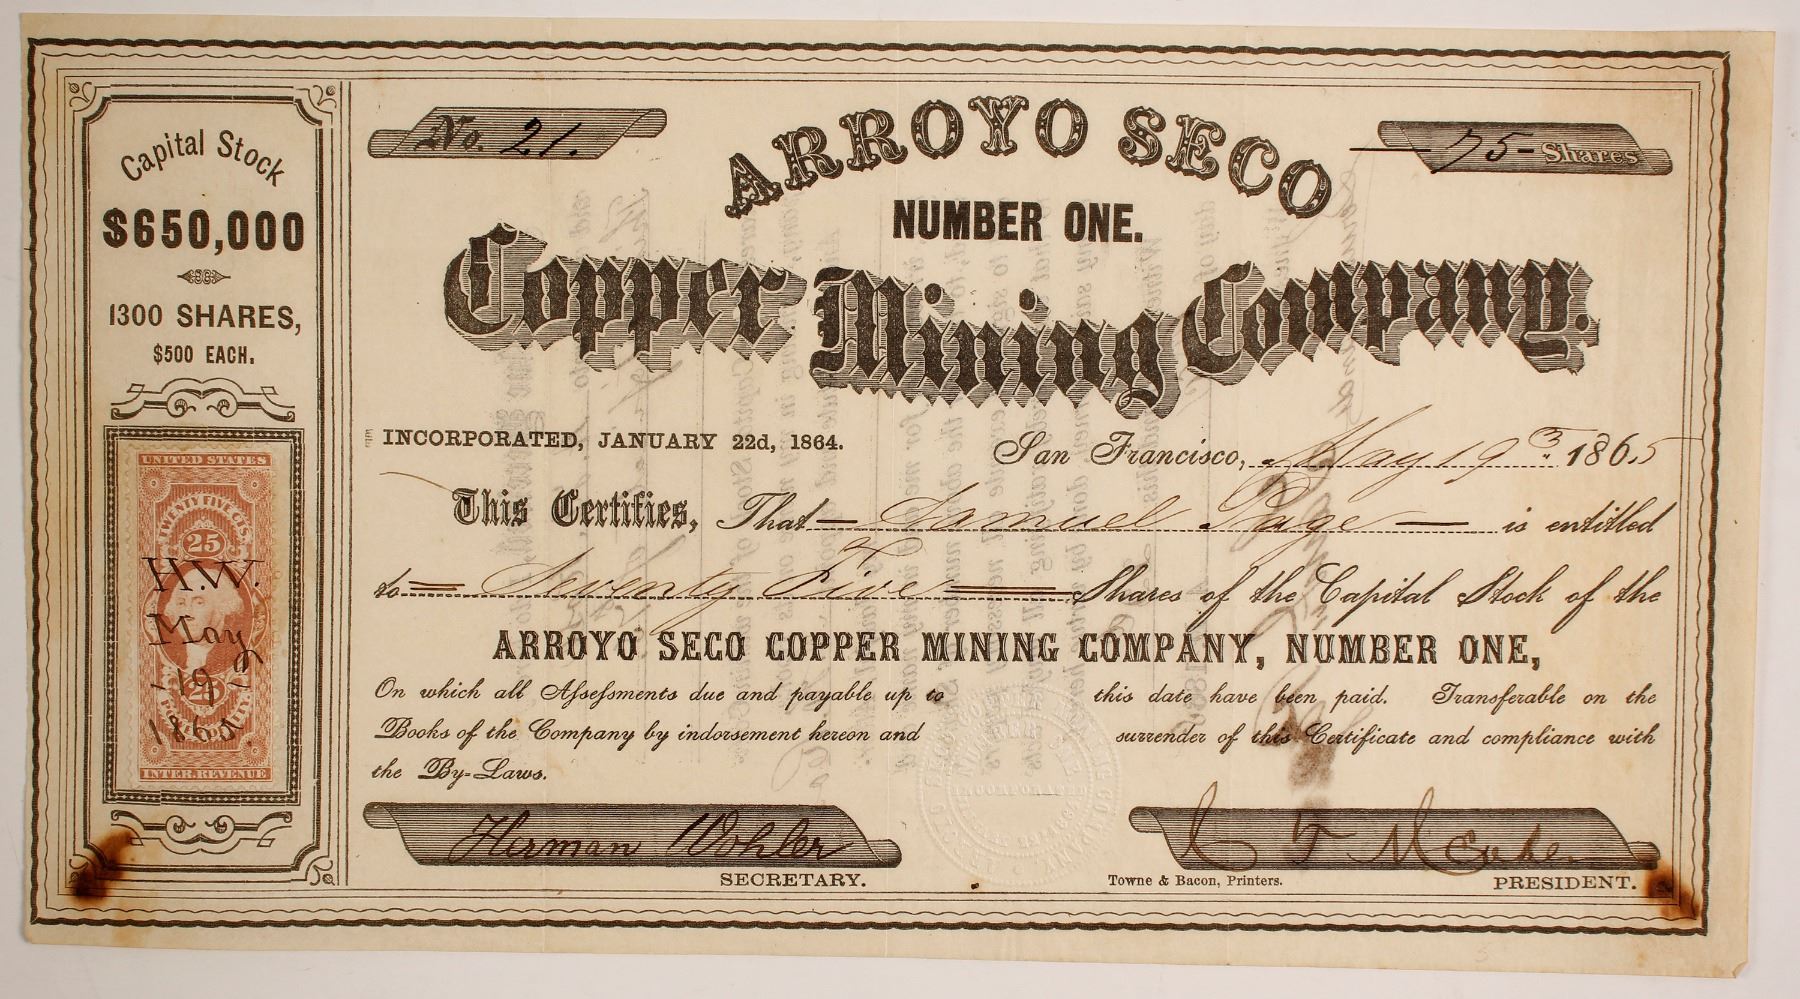 Capital Stock
$650,000
1300 SHARES,
$500 EACH.
UNITED STATES
TWENTY FIVE CTS.
25
H.W.
May
19
1865.
INTER. REVENUE
No. 21.
75 Shares
ARROYO SECO
NUMBER ONE.
Copper Mining Company.
INCORPORATED, JANUARY 22d, 1864.
San Francisco, May 19 1865
This Certifies, That Samuel Page is entitled
to Seventy Five Shares of the Capital Stock of the
ARROYO SECO COPPER MINING COMPANY, NUMBER ONE,
On which all Assessments due and payable up to this date have been paid. Transferable on the
Books of the Company by indorsement hereon and surrender of this Certificate and compliance with
the By-Laws.
Herman Wohler
SECRETARY.
Towne & Bacon, Printers.
PRESIDENT.